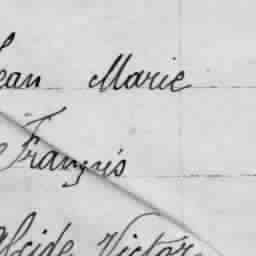 Jean Marie
François
Alcide Victor